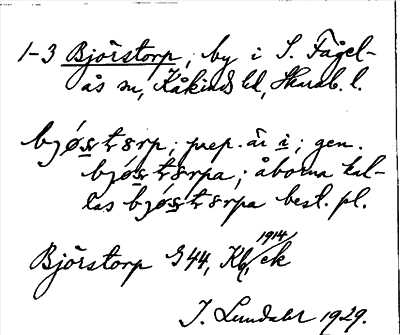 1-3 Björstorp, by i S. Fågel-
ås sn, Kåkinds hd, Skarab. l.
bjøstrp; prep. är i; gen.
bjøstrpa; åborna kal-
las bjøstrpa best. pl.
Björstorp G 44, Kbr, ek
1914
J. Lundahl 1929.